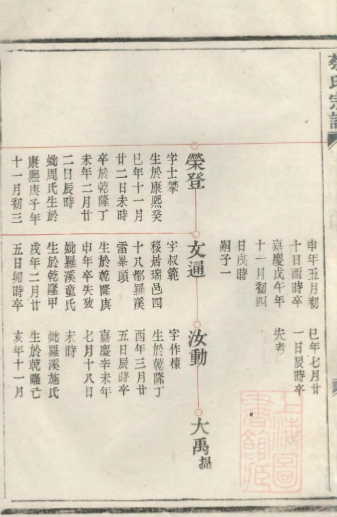 蔡氏宗譜
申年五月初 巳年七月廿
十日酉時卒 一日辰時卒
嘉慶戊午年 失考
十一月初四
日戌時
嗣子一
榮登 文通 汝動 大禹
字士攀 字叔範 字作棟
生於康熙癸 移居瑞邑四 生於乾隆丁
巳年十一月 十八都羅溪 酉年三月廿
廿二日未時 雷頭 五日辰時卒
卒於乾隆丁 生於乾隆庚 嘉慶辛未年
未年二月廿 申年卒失攷 七月十八日
二日辰時 妣羅溪童氏 未時
妣周氏生於 生於乾隆甲 妣羅溪施氏
康熙庚子年 戌年二月廿 生於乾隆己
十一月初三 五日卯時卒 亥年十一月
上海圖書館藏